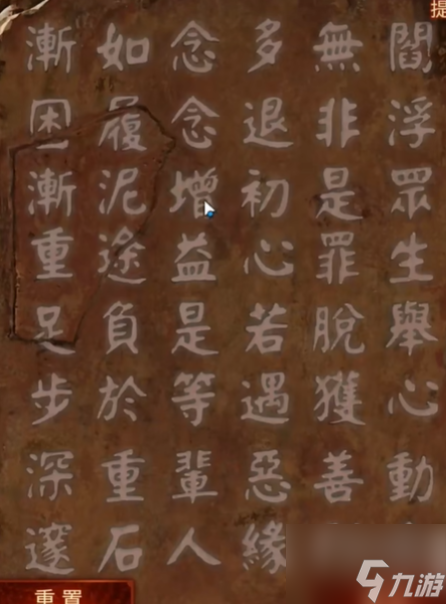 提
閻浮眾生舉心動
無非是罪脫獲善
多退初心若遇惡緣
念念增益是等輩人
如履泥途負於重石
漸困漸重足步深邃
重置
九游